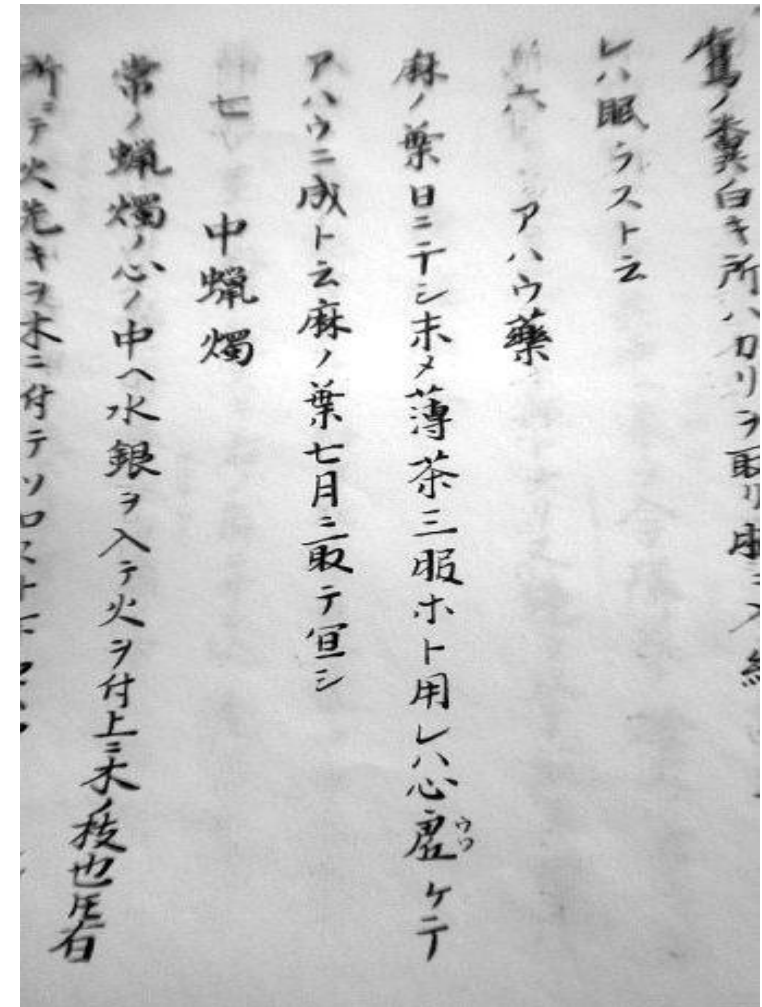 鷹ノ糞白キ所ハカリヲ取リ
レハ眠ラスト云
六 アハウ藥
麻ノ葉日ニテシ末メ薄茶三服ホト用レハ心虚ウツケテ
アハウニ成ト云麻ノ葉七月ニ取テ宜シ
七 中蝋燭
常ノ蝋燭ノ心ノ中ヘ水銀ヲ入テ火ヲ付上ニ木ノ枝也
所ニテ火先キヲ木ニ付テ